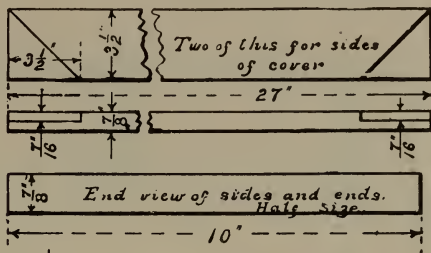 3 1/2"
3 1/2"
Two of this for sides
of cover
27"
7/8"
7/16"
7/16"
7/8"
End view of sides and ends.
Half size.
10"